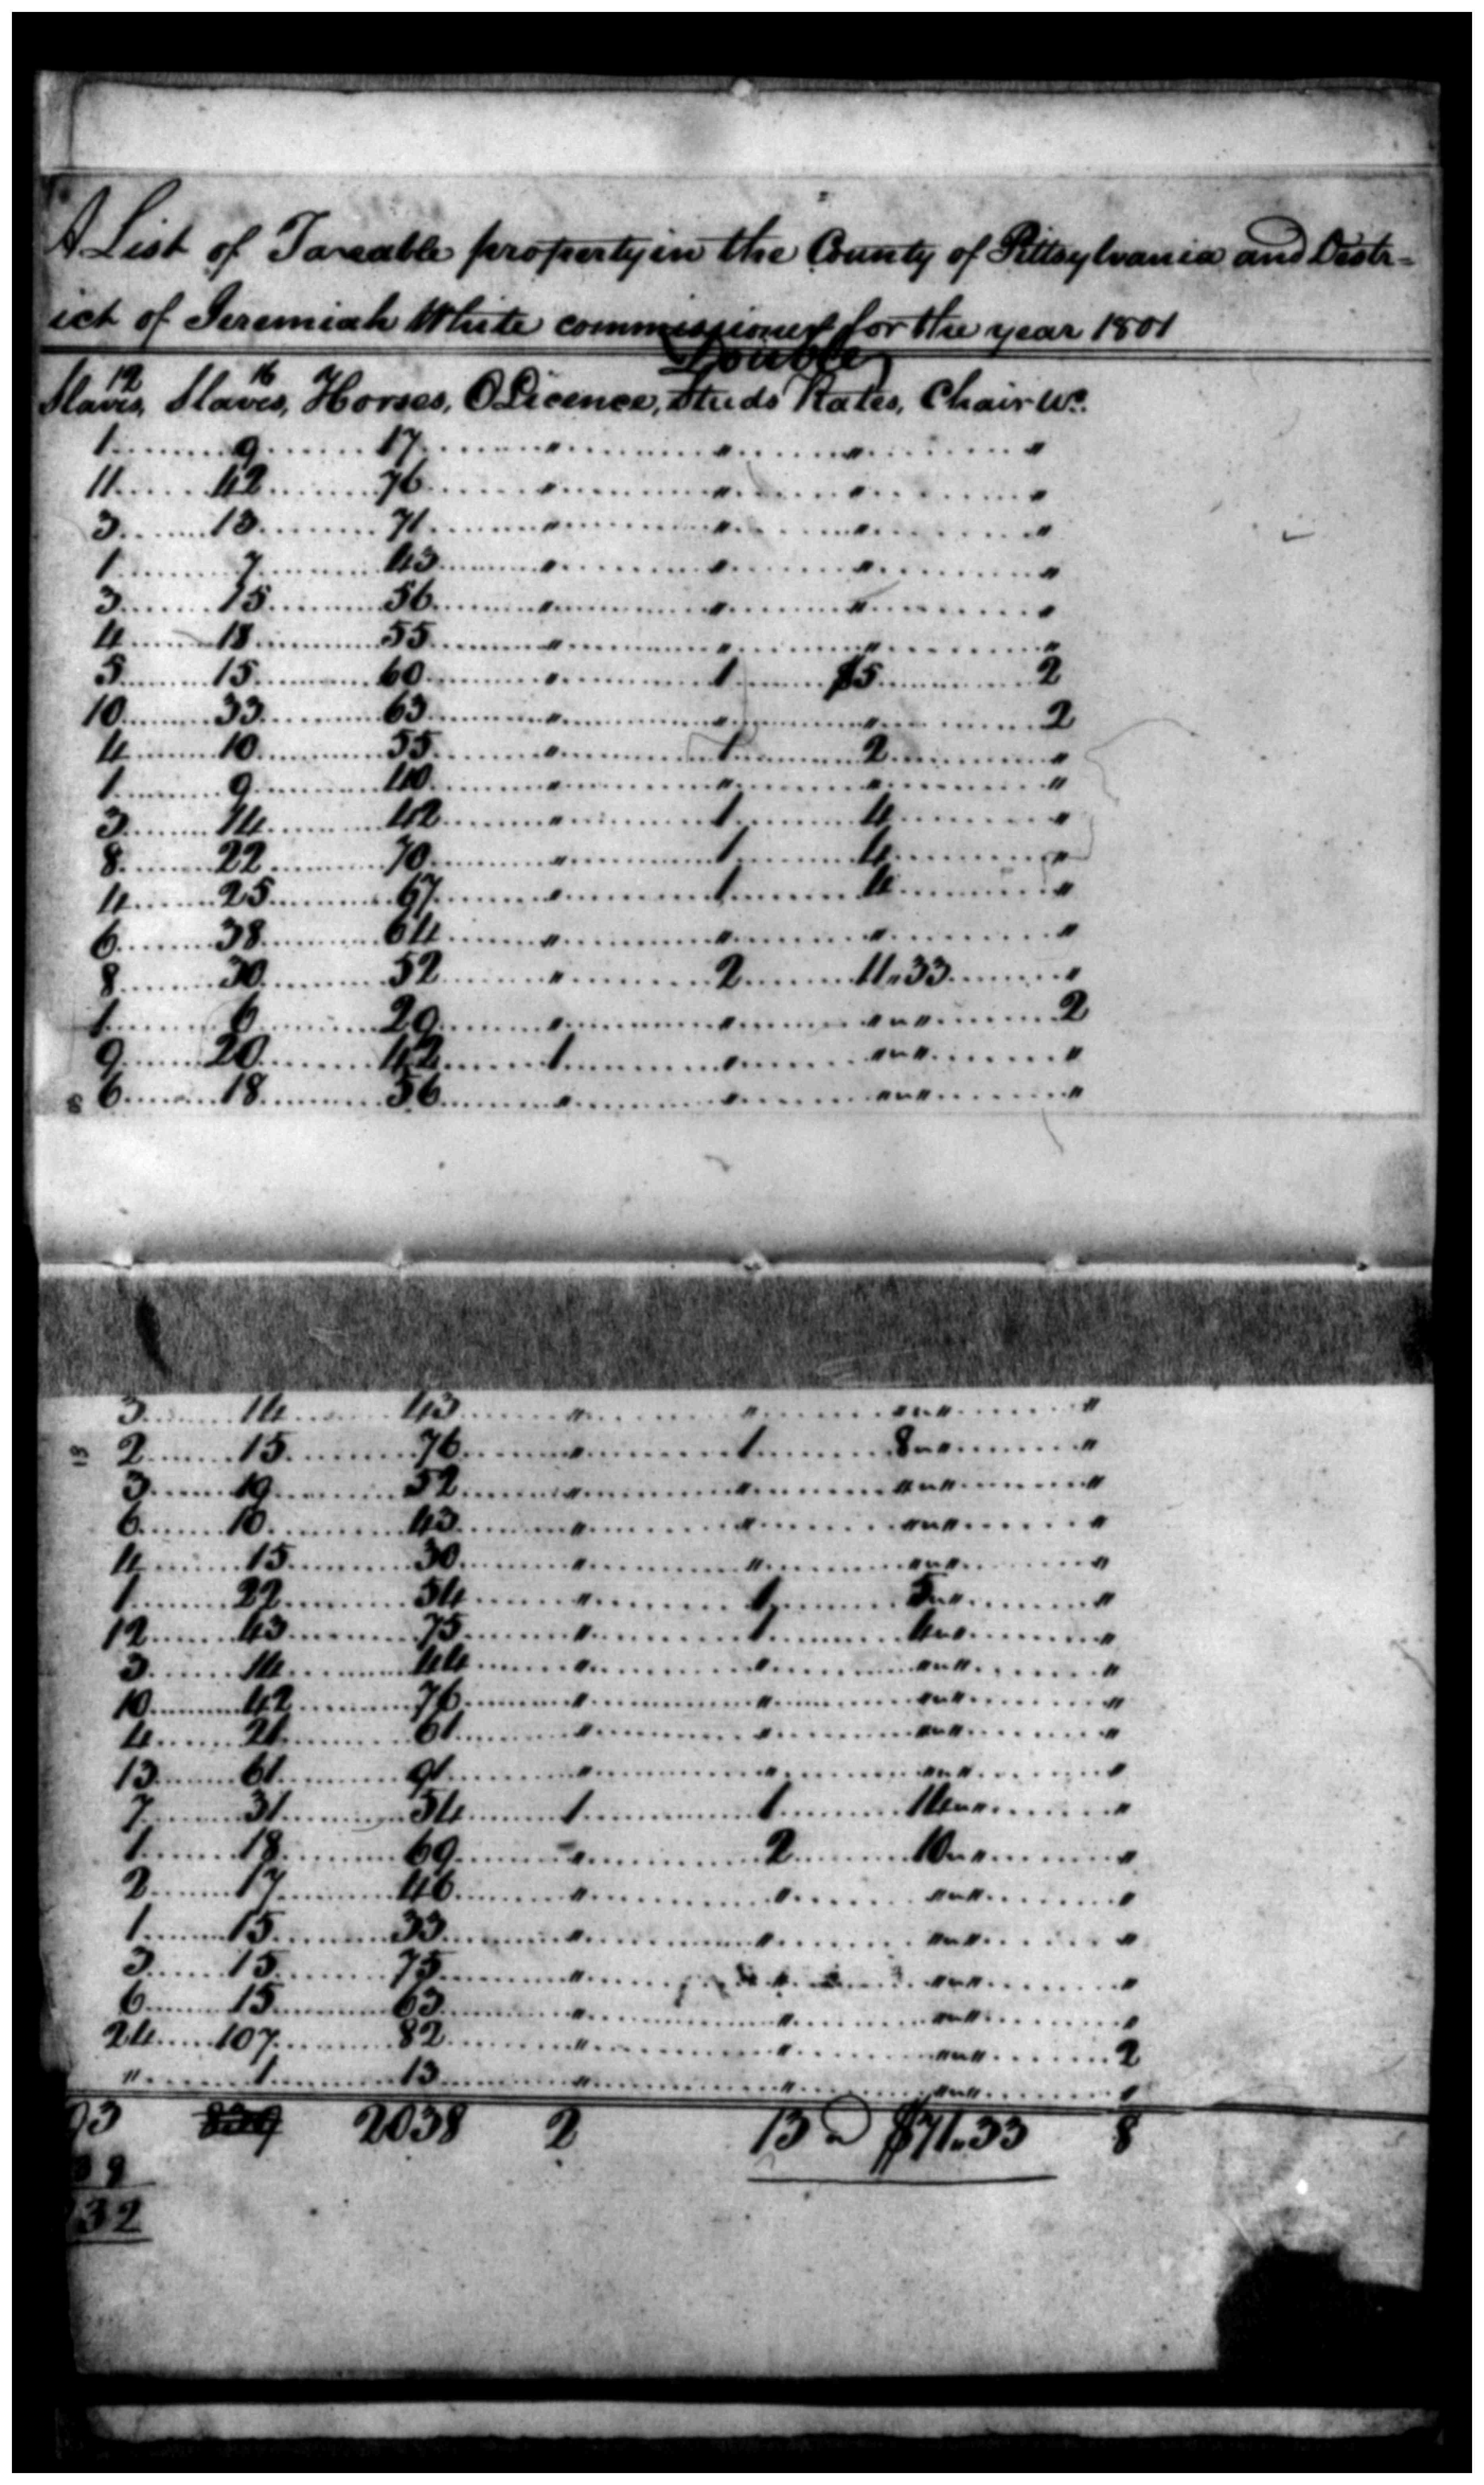 A List of Taxable property in the County of Pittsylvania and Distr=
ict of Jeremiah White commissioner for the year 1801
Double
12 16
Slaves, Slaves, Horses, O Licence, Studs Rates, Chair Ws.
1 9 17 " " " "
11 42 76 " " " "
3 13 71 " " " "
1 7 43 " " " "
3 15 56 " " " "
4 18 55 " " " "
5 15 60 " 1 $5 2
10 33 63 " " " 2
4 10 55 " 1 2 "
1 9 40 " " " "
3 14 42 " 1 4 "
8 22 70 " 1 4 "
4 25 67 " 1 4 "
6 38 64 " " " "
8 30 52 " 2 11.33 "
1 6 29 " " " " " 2
9 20 42 1 " " " " "
6 18 56 " " " " " "
3 14 43 " " " " " "
2 15 76 " 1 8 " " "
3 19 52 " " " " " "
6 10 43 " " " " " "
4 15 30 " " " " " "
1 22 54 " 1 5 " " "
12 43 75 " 1 4 " " "
3 14 44 " " " " " "
10 42 76 " " " " " "
4 21 61 " " " " " "
13 61 91 " " " " " "
7 31 54 1 1 14 " " "
1 18 69 " 2 10 " " "
2 17 46 " " " " " "
1 15 33 " " " " " "
3 15 75 " " " " " "
6 15 63 " " " " " "
24 107 82 " " " " " 2
" 1 13 " " " " " "
93 839 2038 2 13 @ $71.33 8
39
32